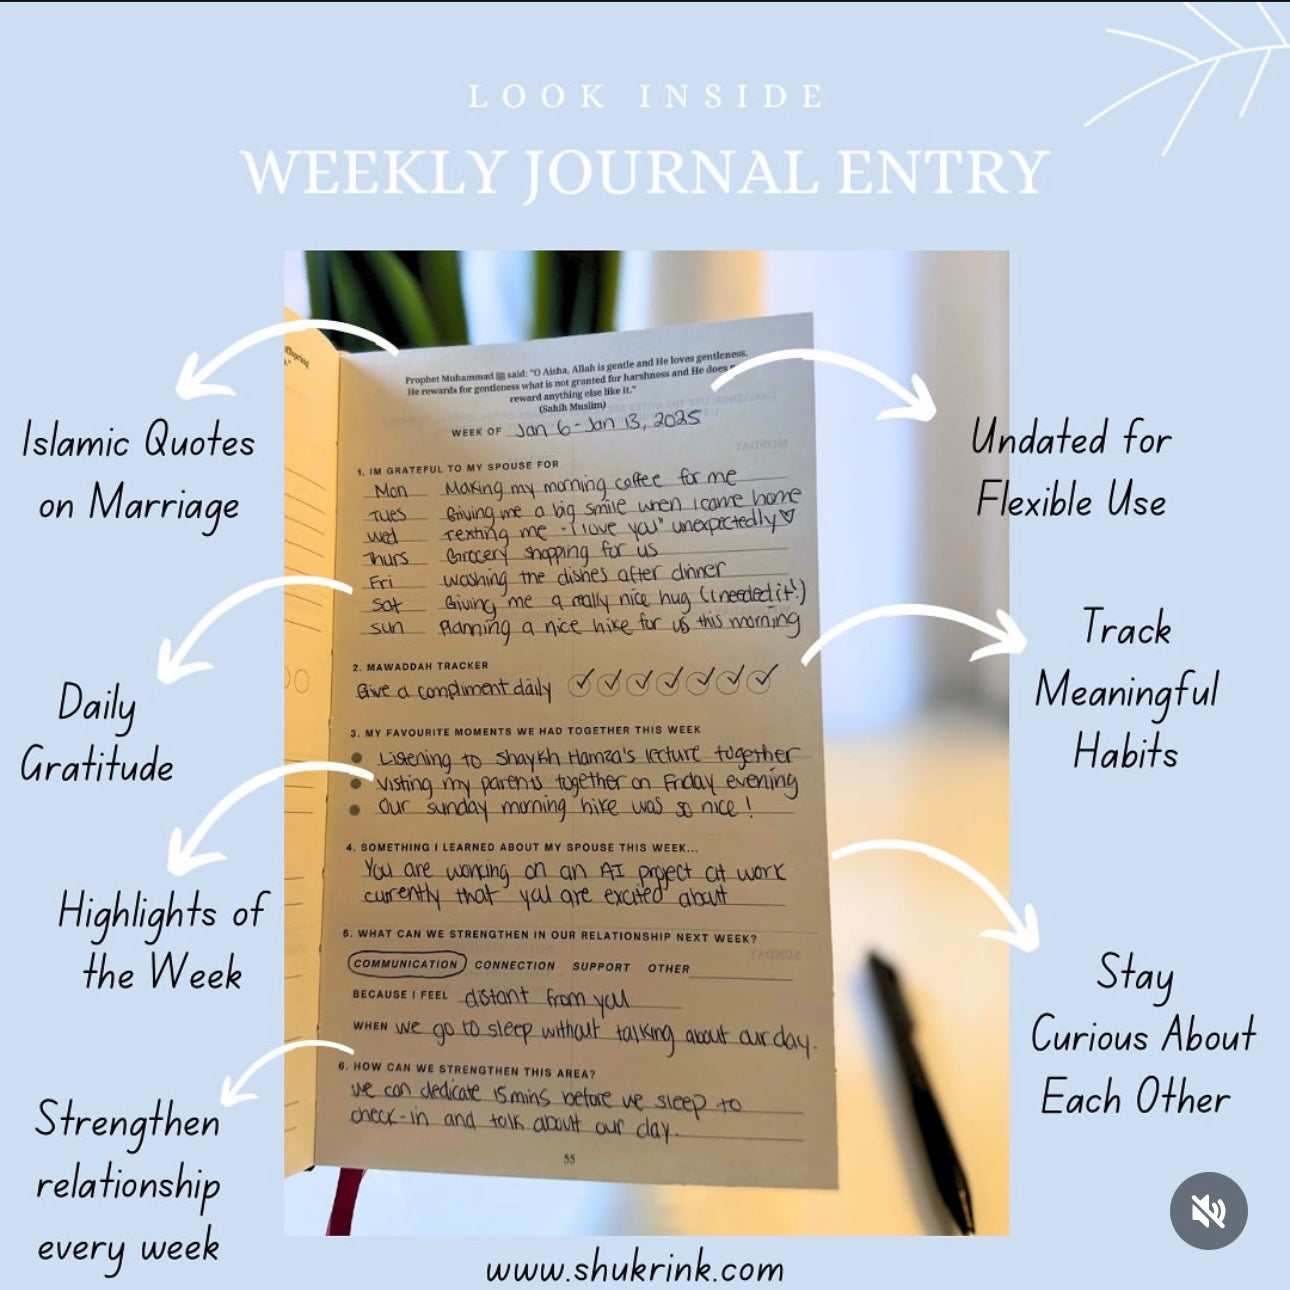 LOOK INSIDE
WEEKLY JOURNAL ENTRY
offspring
Prophet Muhammad ﷺ said: "O Aisha, Allah is gentle and He loves gentleness.
He rewards for gentleness what is not granted for harshness and He does
reward anything else like it."
(Sahih Muslim)
WEEK OF Jan 6 - Jan 13, 2025
1. IM GRATEFUL TO MY SPOUSE FOR
Mon Making my morning coffee for me
Tues Giving me a big smile when I came home
Wed Texting me "I love you" unexpectedly ♡
Thurs Grocery shopping for us
Fri Washing the dishes after dinner
Sat Giving me a really nice hug (I needed it!)
Sun Planning a nice hike for us this morning
2. MAWADDAH TRACKER
Give a compliment daily ✓ ✓ ✓ ✓ ✓ ✓ ✓
3. MY FAVOURITE MOMENTS WE HAD TOGETHER THIS WEEK
Listening to Shaykh Hamza's lecture together
Visting my parents together on Friday evening
Our Sunday morning hike was so nice!
4. SOMETHING I LEARNED ABOUT MY SPOUSE THIS WEEK...
You are working on an AI project at work
currently that you are excited about
5. WHAT CAN WE STRENGTHEN IN OUR RELATIONSHIP NEXT WEEK?
COMMUNICATION CONNECTION SUPPORT OTHER
BECAUSE I FEEL distant from you
WHEN we go to sleep without talking about our day.
6. HOW CAN WE STRENGTHEN THIS AREA?
We can dedicate 15 mins before we sleep to
check-in and talk about our day.
55
Islamic Quotes
on Marriage
Daily
Gratitude
Highlights of
the Week
Strengthen
relationship
every week
Undated for
Flexible Use
Track
Meaningful
Habits
Stay
Curious About
Each Other
www.shukrink.com